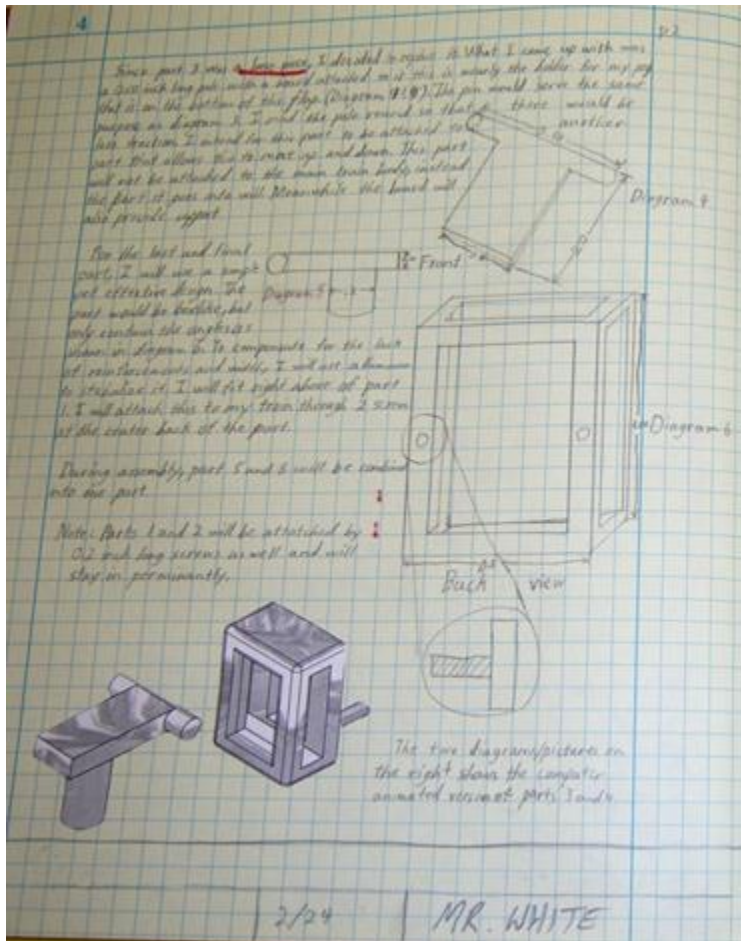 4
Since part 3 was a I decided to replace it. What I came up with was
a inch long pole with a board attached this is mainly the holder for my peg
that is on the bottom of the flap (Diagram 4). The pin would serve the same
purpose as diagram 3. I the pole round so that there would be
less friction. I intend for this part to be attached to another
part that allows this to move up and down. This part
will not be attached to the main train body, instead
the part it goes into will. Meanwhile the board will
also provide support.
Diagram 4
For the last and final
part, I will use a simple
yet effective design. The
part would be but
only contain the angles as
shown in diagram 6. To compensate for the lack
of reinforcements and width, I will use aluminum
to stabilize it. I will fit right above of part
1. I will attach this to my train through 2 screws
at the center back of the part.
Front
Diagram 5
Diagram 6
During assembly, part 5 and 6 will be combined
into one part.
Note: Parts 1 and 2 will be attatched by
0.2 inch long screws as well and will
stay in permanantly.
Back view
The two diagrams/pictures on
the right shows the computer
animated version of parts 3 and 4
2/24
MR. WHITE